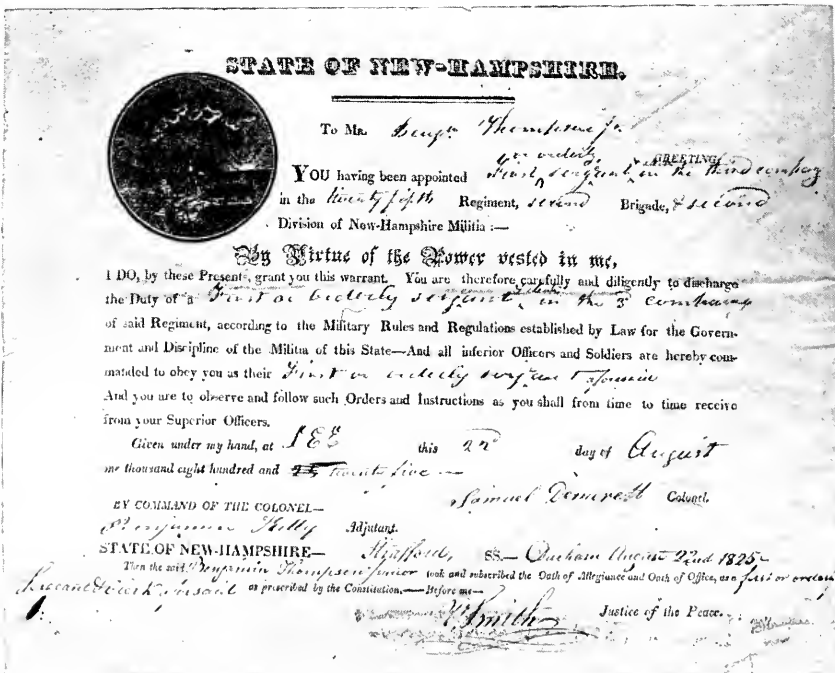 STATE OF NEW-HAMPSHIRE.
To Mr. Benjn Thompson Jr.
GREETING
or orderly
YOU having been appointed First sergeant in the third company
in the twenty fifth Regiment, second Brigade, & second
Division of New-Hampshire Militia :—
By Virtue of the Power vested in me,
I DO, by these Presents, grant you this warrant. You are therefore carefully and diligently to discharge
the Duty of a First or orderly sergeant in the 3d company
of said Regiment, according to the Military Rules and Regulations established by Law for the Govern-
ment and Discipline of the Militia of this State—And all inferior Officers and Soldiers are hereby com-
manded to obey you as their First or orderly sergeant
And you are to observe and follow such Orders and Instructions as you shall from time to time receive
from your Superior Officers.
Given under my hand, at LEE this 22d day of August
one thousand eight hundred and twenty five —
Samuel Demeritt Colonel.
BY COMMAND OF THE COLONEL—
Benjamin Kelly Adjutant.
STATE OF NEW-HAMPSHIRE— Strafford, SS.— Durham August 22nd 1825
Then the said Benjamin Thompson junior took and subscribed the Oath of Allegiance and Oath of Office, as a first or orderly
Sergeant & Clerk as prescribed by the Constitution.—Before me—
Smith Justice of the Peace.